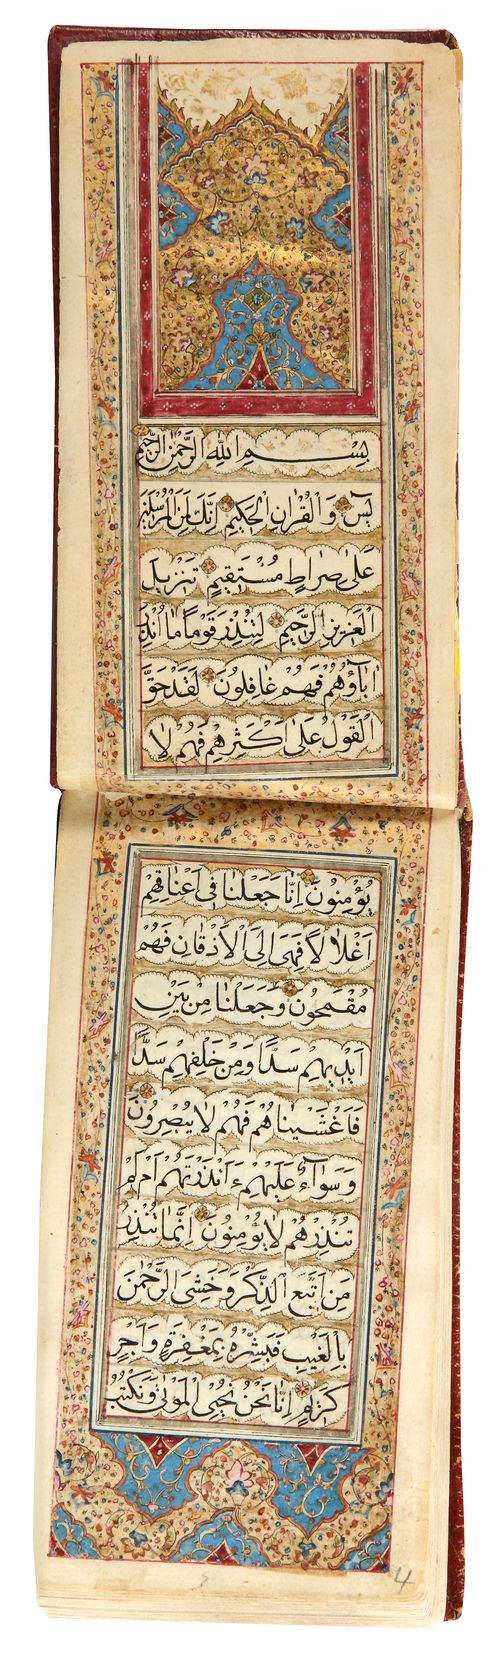 بِسْمِ اللهِ الرَّحْمٰنِ الرَّحِيمِ
يسۤ وَالْقُرْاٰنِ الْحَكِيمِ اِنَّكَ لَمِنَ الْمُرْسَلِينَ
عَلىٰ صِرَاطٍ مُسْتَقِيمٍ تَنْزِيلَ
الْعَزِيزِ الرَّحِيمِ لِتُنْذِرَ قَوْمًا مَا اُنْذِرَ
اٰبَاؤُهُمْ فَهُمْ غَافِلُونَ لَقَدْ حَقَّ
الْقَوْلُ عَلىٰ اَكْثَرِهِمْ فَهُمْ لَا
يُؤْمِنُونَ اِنَّا جَعَلْنَا فِى اَعْنَاقِهِمْ
اَغْلَالًا فَهِىَ اِلَى الْاَذْقَانِ فَهُمْ
مُقْمَحُونَ وَجَعَلْنَا مِنْ بَيْنِ
اَيْدِيهِمْ سَدًّا وَمِنْ خَلْفِهِمْ سَدًّا
فَاَغْشَيْنَاهُمْ فَهُمْ لَا يُبْصِرُونَ
وَسَوَاۤءٌ عَلَيْهِمْ ءَاَنْذَرْتَهُمْ اَمْ لَمْ
تُنْذِرْهُمْ لَا يُؤْمِنُونَ اِنَّمَا تُنْذِرُ
مَنِ اتَّبَعَ الذِّكْرَ وَخَشِىَ الرَّحْمٰنَ
بِالْغَيْبِ فَبَشِّرْهُ بِمَغْفِرَةٍ وَاَجْرٍ
كَرِيمٍ اِنَّا نَحْنُ نُحْيِى الْمَوْتىٰ وَنَكْتُبُ
3 4